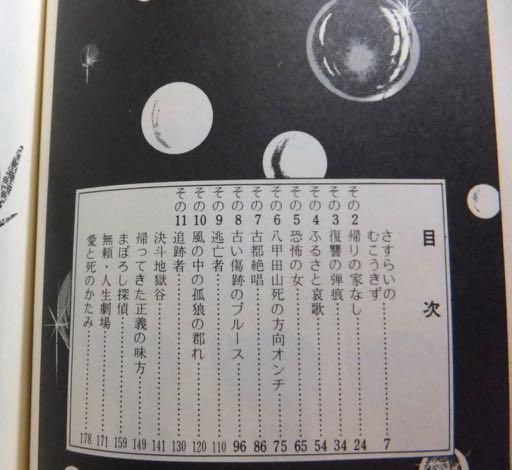 目次
さすらいの
むこうきず……7
その2 帰りの家なし……24
その3 復讐の弾痕……34
その4 ふるさと哀歌……54
その5 恐怖の女……65
その6 八甲田山死の方向オンチ……75
その7 古都絶唱……86
その8 古い傷跡のブルース……96
その9 逃亡者……110
その10 風の中の孤狼の郡れ……120
その11 追跡者……130
決斗地獄谷……141
帰ってきた正義の味方……149
まぼろし探偵……159
無頼・人生劇場……171
愛と死のかたみ……178